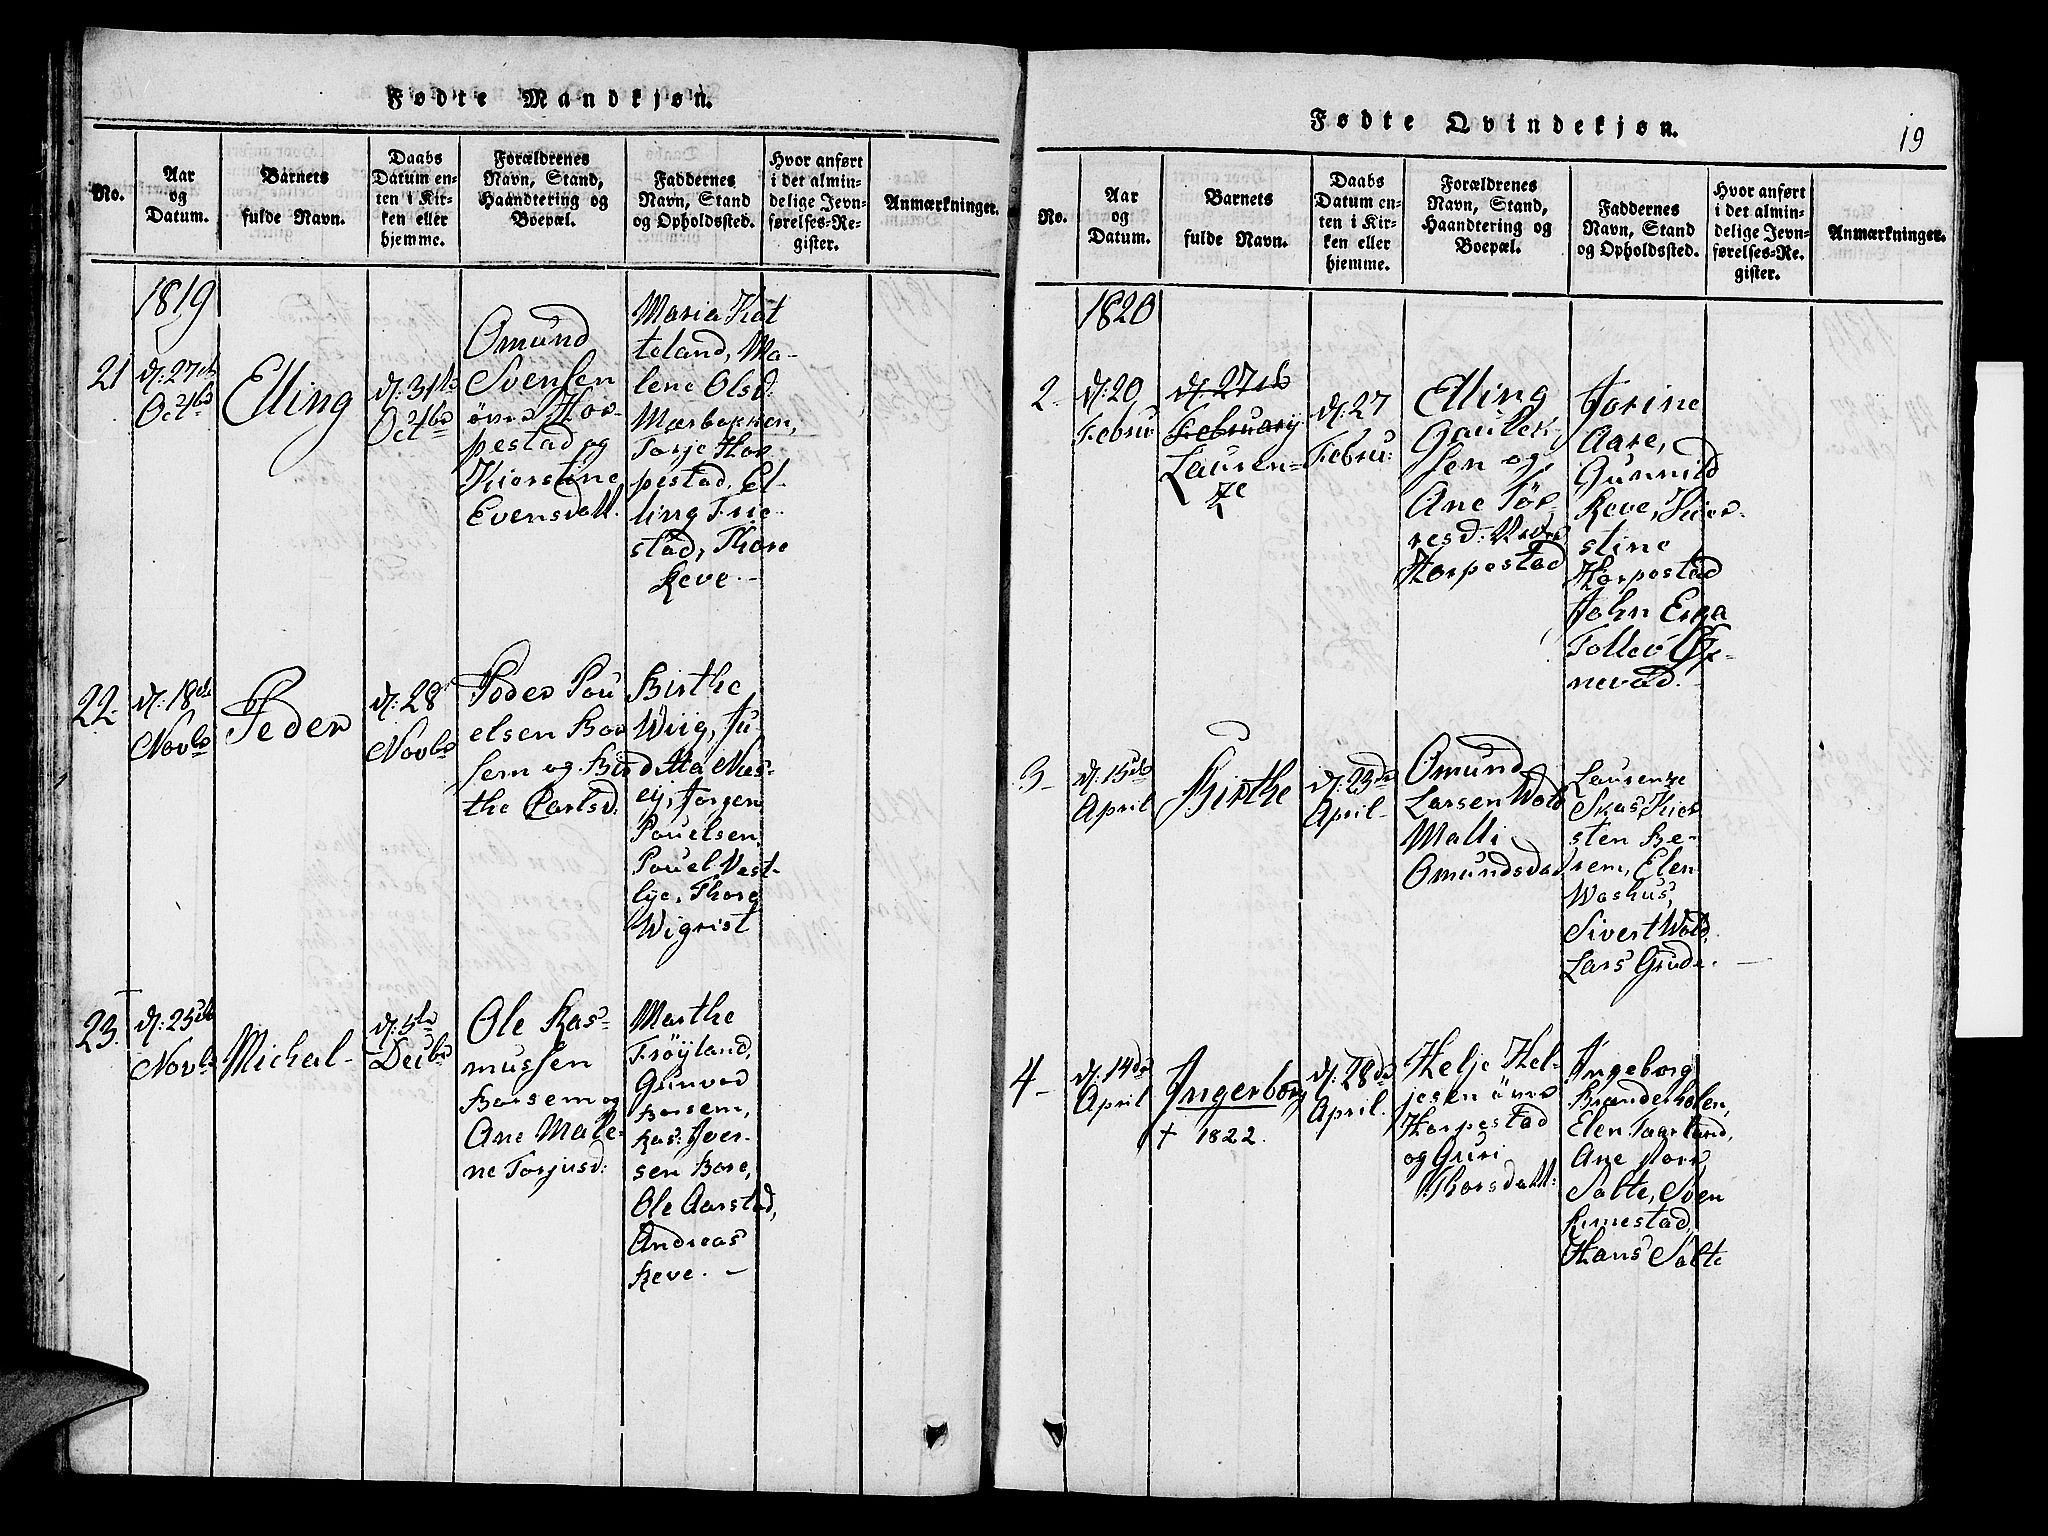 Fødte Mandkjøn.
No.
Aar
og
Datum.
Barnets
fulde Navn.
Daabs
Datum en-
ten i Kir-
ken eller
hjemme.
Forældrenes
Navn, Stand,
Haandtering og
Boepæl.
Faddernes
Navn, Stand
og Opholdssted.
Hvor anført
i det almin-
delige Jevn-
førelses-Re-
gister.
Anmærkninger.
1819
21
d: 27de
Octbr
Elling
d: 31te
Octbr
Omund
Svensen
övre Hor-
pestad og
Kierstine
Evensdatt.
Maria Kat
teland, Ma-
lene Olsd:
Mærbakken,
Torje Hor
pestad, El-
ling Tue-
stad, Thore
Reve. -
22
d: 18de
Novbr
Peder
d: 28
Novbr
Peder Pou
elsen Bor
sem og Bir
the Carlsd:
Birthe
Wiig, Ju
ditta Næs-
ej, Jørgen
Pouelsen,
Pouel Vest-
lye, Thore
Wigrist
23.
d: 25de
Novbr
Michal-
d: 5te
Decbr
Ole Ras-
mussen
Borsem og
Ane Male-
ne Torjusd:
Marthe
Frøyland,
Gunvor
Borsem,
Ras: Iver-
sen Bore,
Ole Aarstad,
Andreas
Reve. -
Fødte Qvindekjøn.
19
No.
Aar
og
Datum.
Barnets
fulde Navn.
Daabs
Datum en-
ten i Kir-
ken eller
hjemme.
Forældrenes
Navn, Stand,
Haandtering og
Boepæl.
Faddernes
Navn, Stand
og Opholdssted.
Hvor anført
i det almin-
delige Jevn-
førelses-Re-
gister.
Anmærkninger.
1820
2-
d: 20
Februr
d: 27de
February
Lauren-
ze
d: 27
Febru:
Elling
Gautek-
sen og
Ane Tør-
resd: Nedre
Horpestad
Jorine
Aare,
Gunnild
Reve, Kier-
stine
Horpestad
John Erga
Tollev Øx-
nevad.
3-
d: 15de
April
Birthe
d: 23de
April-
Omund
Larsen Wold
Malli
Omundsdad
Laurenze
Skas Kier
sten Re-
rem, Elen
Washus,
Sivert Wold,
Lars Grude. -
4-
d: 14de
April
Ingerborg
+ 1822.
d: 28de
April.
Helje Hel-
jesen övre
Horpestad
og Guri
Thorsdatt:
Ingeborg
Brandsholen,
Elen Taarland,
Ane
Salte, Sven
Rimestad,
Hans Salte